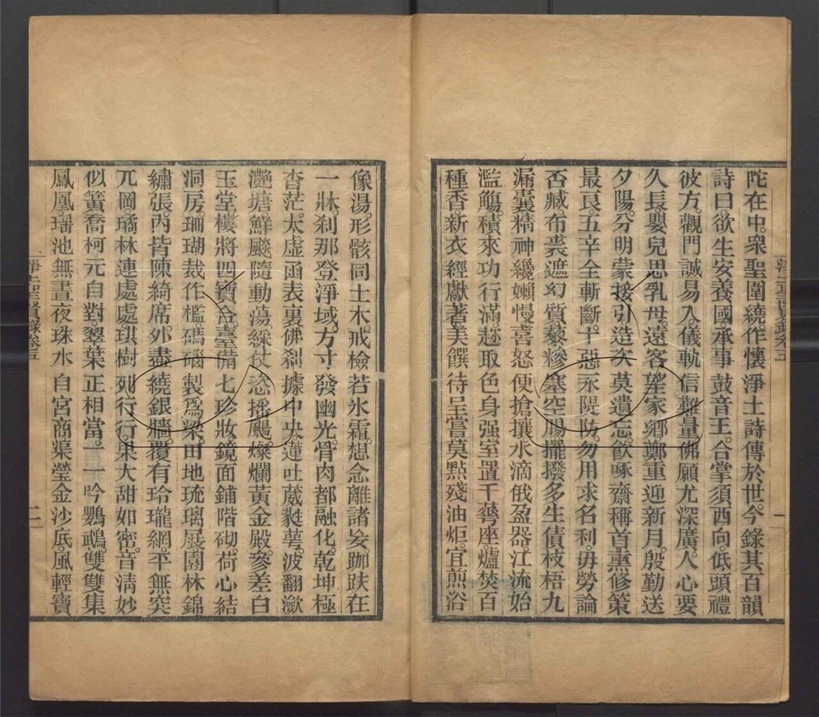 陀在中。眾聖圍繞。作懷淨土詩傳於世。今錄其百韻
詩曰。欲生安養國。承事鼓音王。合掌須西向。低頭禮
彼方。觀門誠易入。儀軌信難量。佛願尤深廣。人心要
久長。嬰兒思乳母。遠客望家鄉。鄭重迎新月。殷勤送
夕陽。分明蒙接引。造次莫遺忘。飲啄齋稱首。熏修策
最良。五辛全斬斷。十惡永隄防。勿用求名利。毋勞論
否臧。布裘遮幻質。藜糝塞空腸。擺撥多生債。枝梧九
漏囊。精神纔嬾慢。喜怒便搶攘。水滴俄盈器。江流始
濫觴。積來功行滿。趂取色身强。室置千華座。爐焚百
種香。新衣經獻著。美饌待呈嘗。莫點殘油炬。宜煎浴
像湯。形骸同土木。戒檢若氷霜。想念離諸妄。跏趺在
一牀。刹那登淨域。方寸發幽光。骨肉都融化。乾坤極
杳茫。太虛函表裏。佛刹據中央。蓮吐葳蕤萼。波翻瀲
灩塘。鮮飈隨動蕩。綵仗恣搖颺。燦爛黃金殿。參差白
玉堂。樓將四寶合。臺備七珍妝。鏡面鋪階砌。荷心結
洞房。珊瑚裁作檻。碼碯製爲梁。田地琉璃展。園林錦
繡張。內皆陳綺席。外盡繞銀牆。覆有玲瓏網。平無突
兀岡。璚林連處處。琪樹列行行。果大甜如密。音清妙
似簧。喬柯元自對。翠葉正相當。一一吟鸚鵡。雙雙集
鳳凰。瑤池無晝夜。珠水自宮商。渠瑩金沙底。風輕寶
淨土聖賢錄卷五
一
二